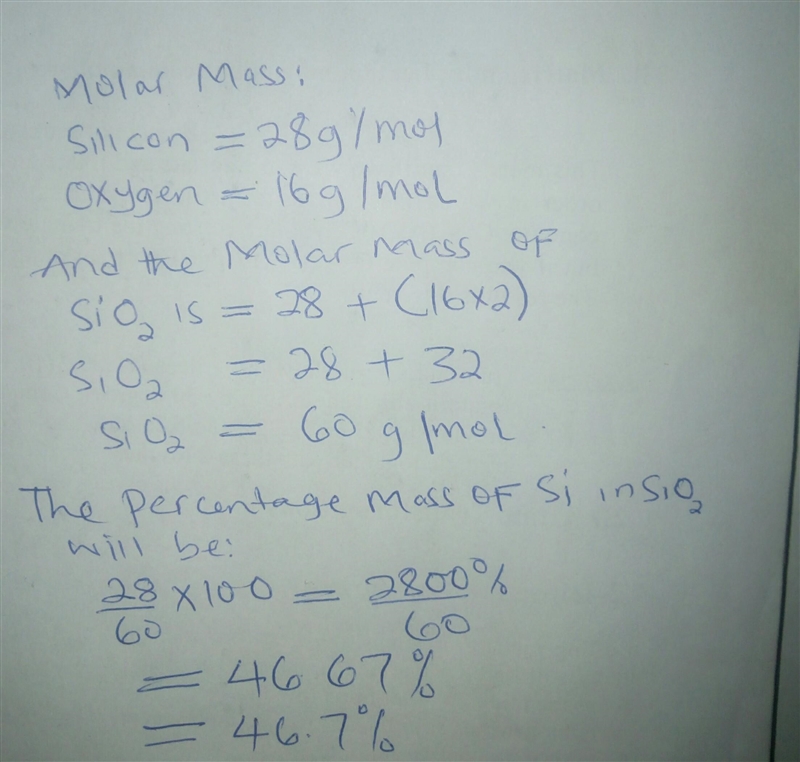 Molar Mass:
Silicon = 28g/mol
Oxygen = 16g/mol
And the Molar Mass OF
SiO₂ is = 28 + (16×2)
SiO₂ = 28 + 32
SiO₂ = 60 g/mol.
The Percentage Mass OF Si in SiO₂
will be:
28/60 × 100 = 2800%/60
= 46 67%
= 46.7%